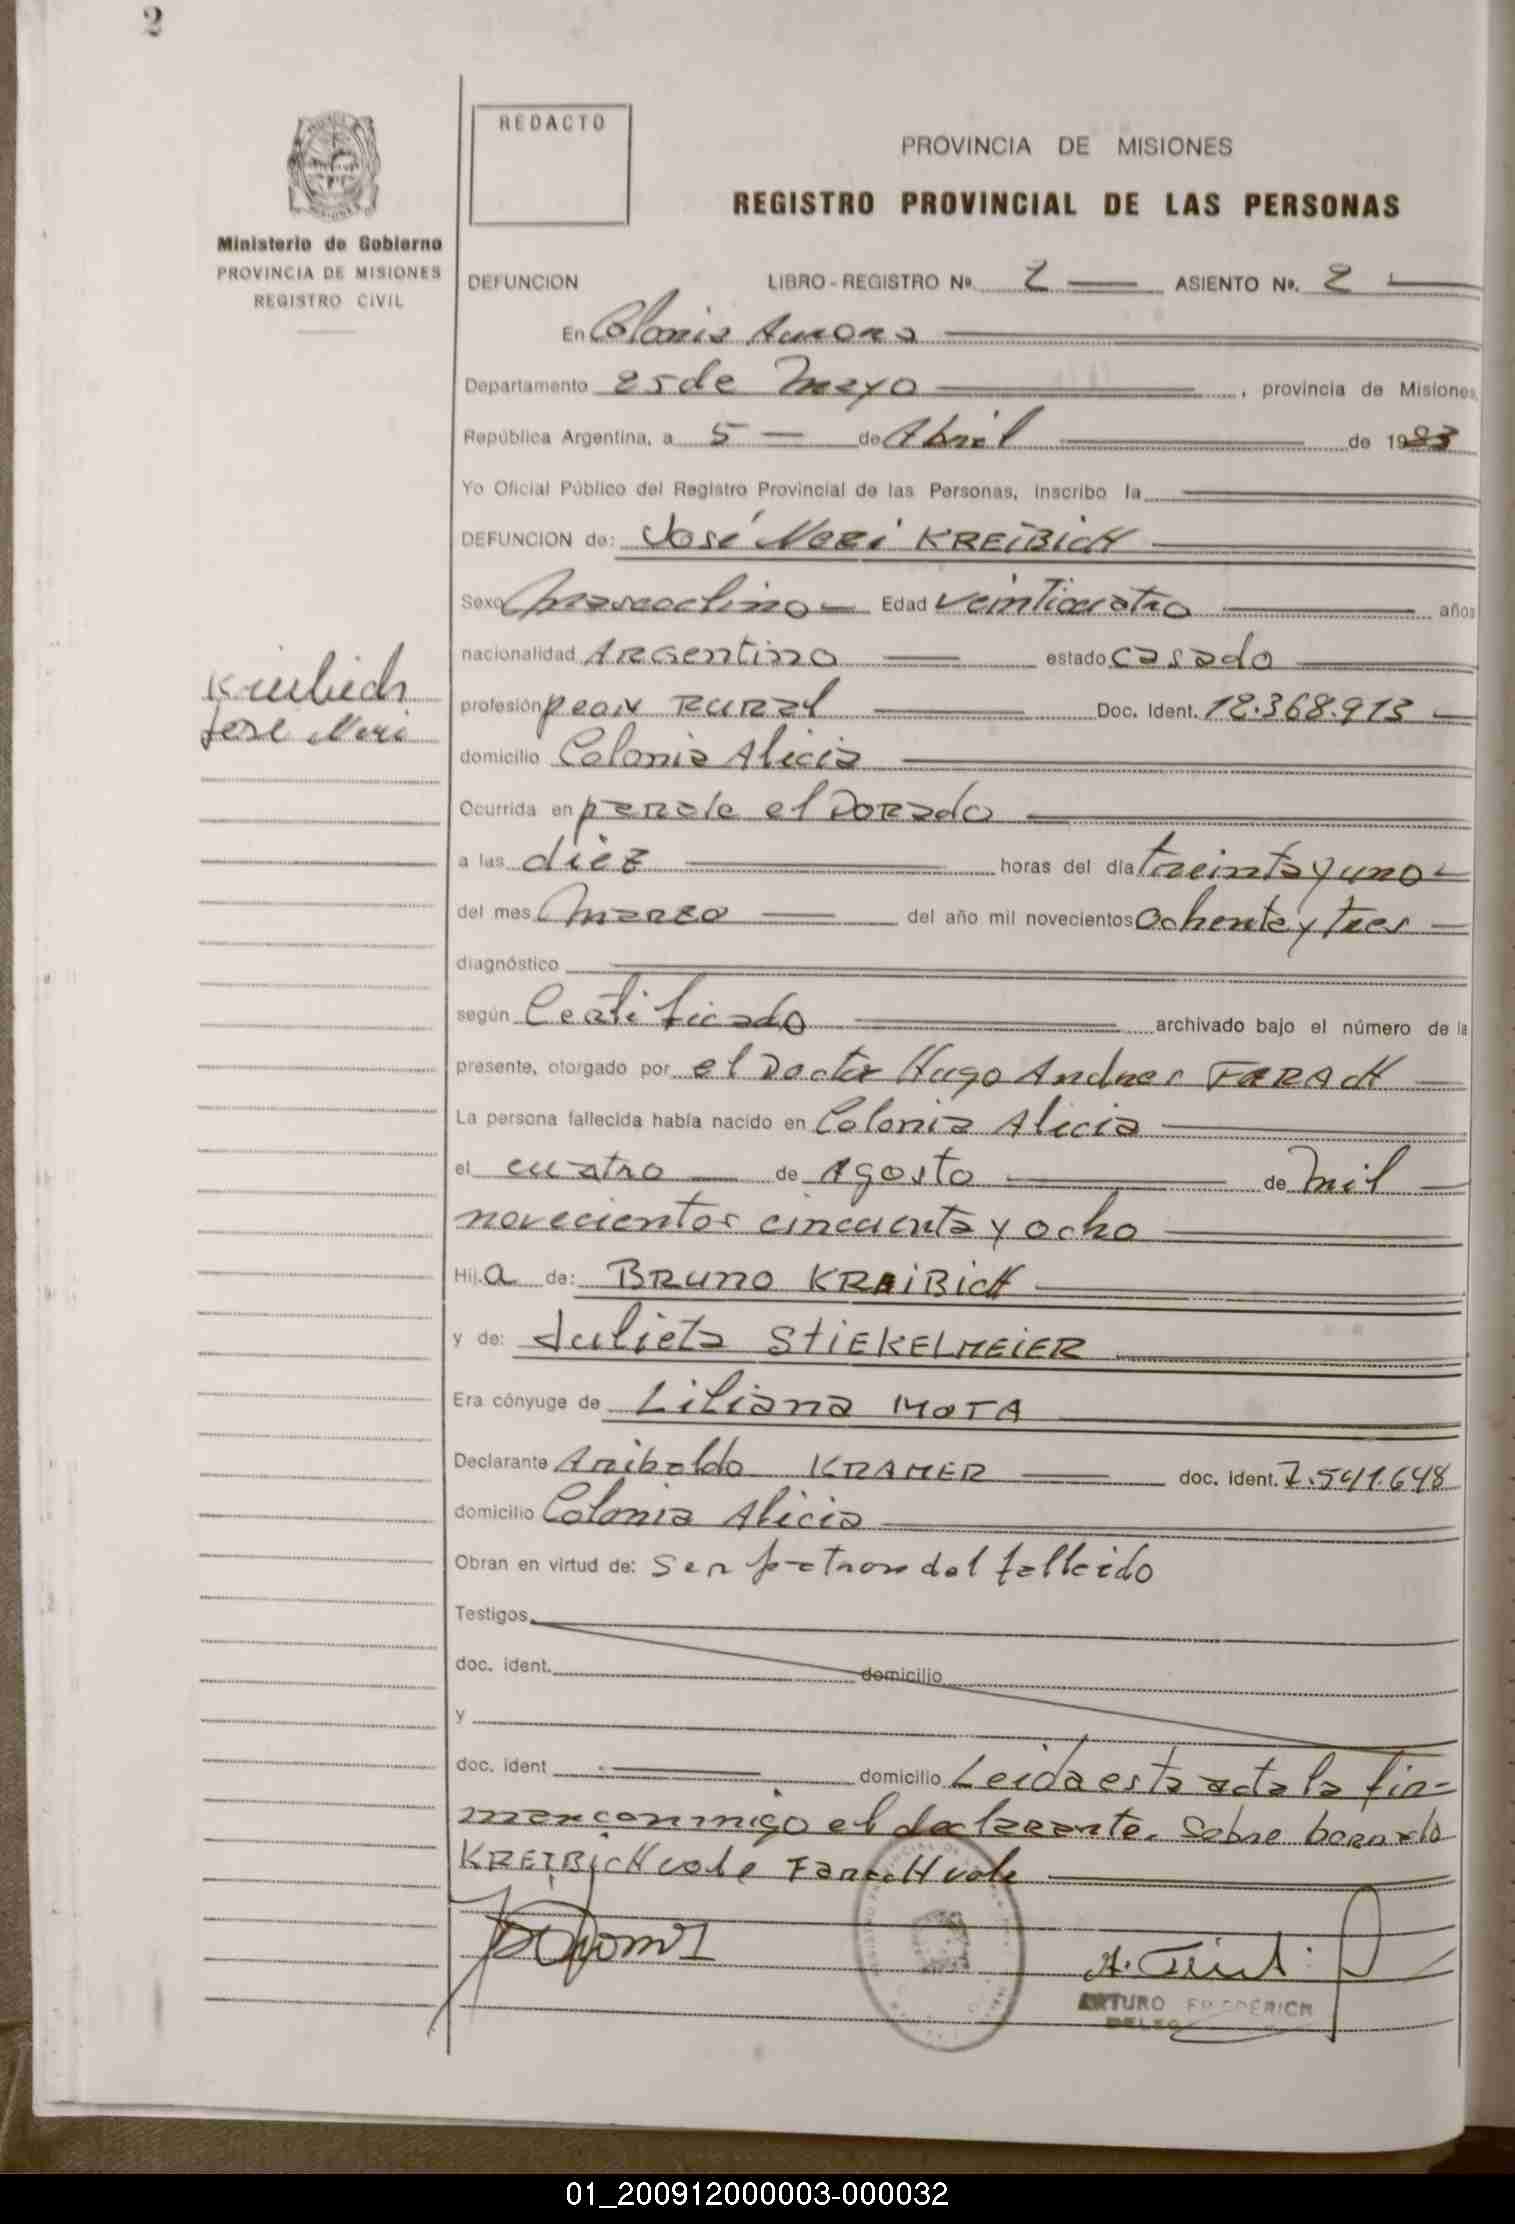 2
REDACTO
PROVINCIA DE MISIONES
REGISTRO PROVINCIAL DE LAS PERSONAS
Ministerio de Gobierno
PROVINCIA DE MISIONES
REGISTRO CIVIL
DEFUNCION LIBRO - REGISTRO Nº. ASIENTO Nº. 2
En Colonia Aurora
Departamento 25 de Mayo, provincia de Misiones,
República Argentina, a 5 de Abril de 1983
Yo Oficial Público del Registro Provincial de las Personas, inscribo la
DEFUNCION de: José Neri KREiBicH
Sexo Masculino Edad veinticuatro años
nacionalidad Argentino estado casado
profesión peon RURal Doc. Ident. 12.368.913
domicilio Colonia Alicia
Kreibich
Jose Neri
Ocurrida en el DORado
a las diez horas del día treinta y uno
del mes Marzo del año mil novecientos ochenta y tres
diagnóstico
según Certificado archivado bajo el número de la
presente, otorgado por el Doctor Hugo Andres FaRACH
La persona fallecida había nacido en Colonia Alicia
el cuatro de Agosto de mil
novecientos cincuenta y ocho
Hij.a de: BRuno KRAiBicH
y de: Julieta StiEKELMEiER
Era cónyuge de Liliana MOTA
Declarante Aribaldo KRAMER doc. Ident. 7.541.648
domicilio Colonia Alicia
Obran en virtud de: Ser patron del
Testigos
doc. ident. domicilio
y
doc. ident domicilio Leida esta acta la fir-
man conmigo el declarante. Sobre borrado
KREIBicH vale FaracH vale
ARTURO FRIEDERICH